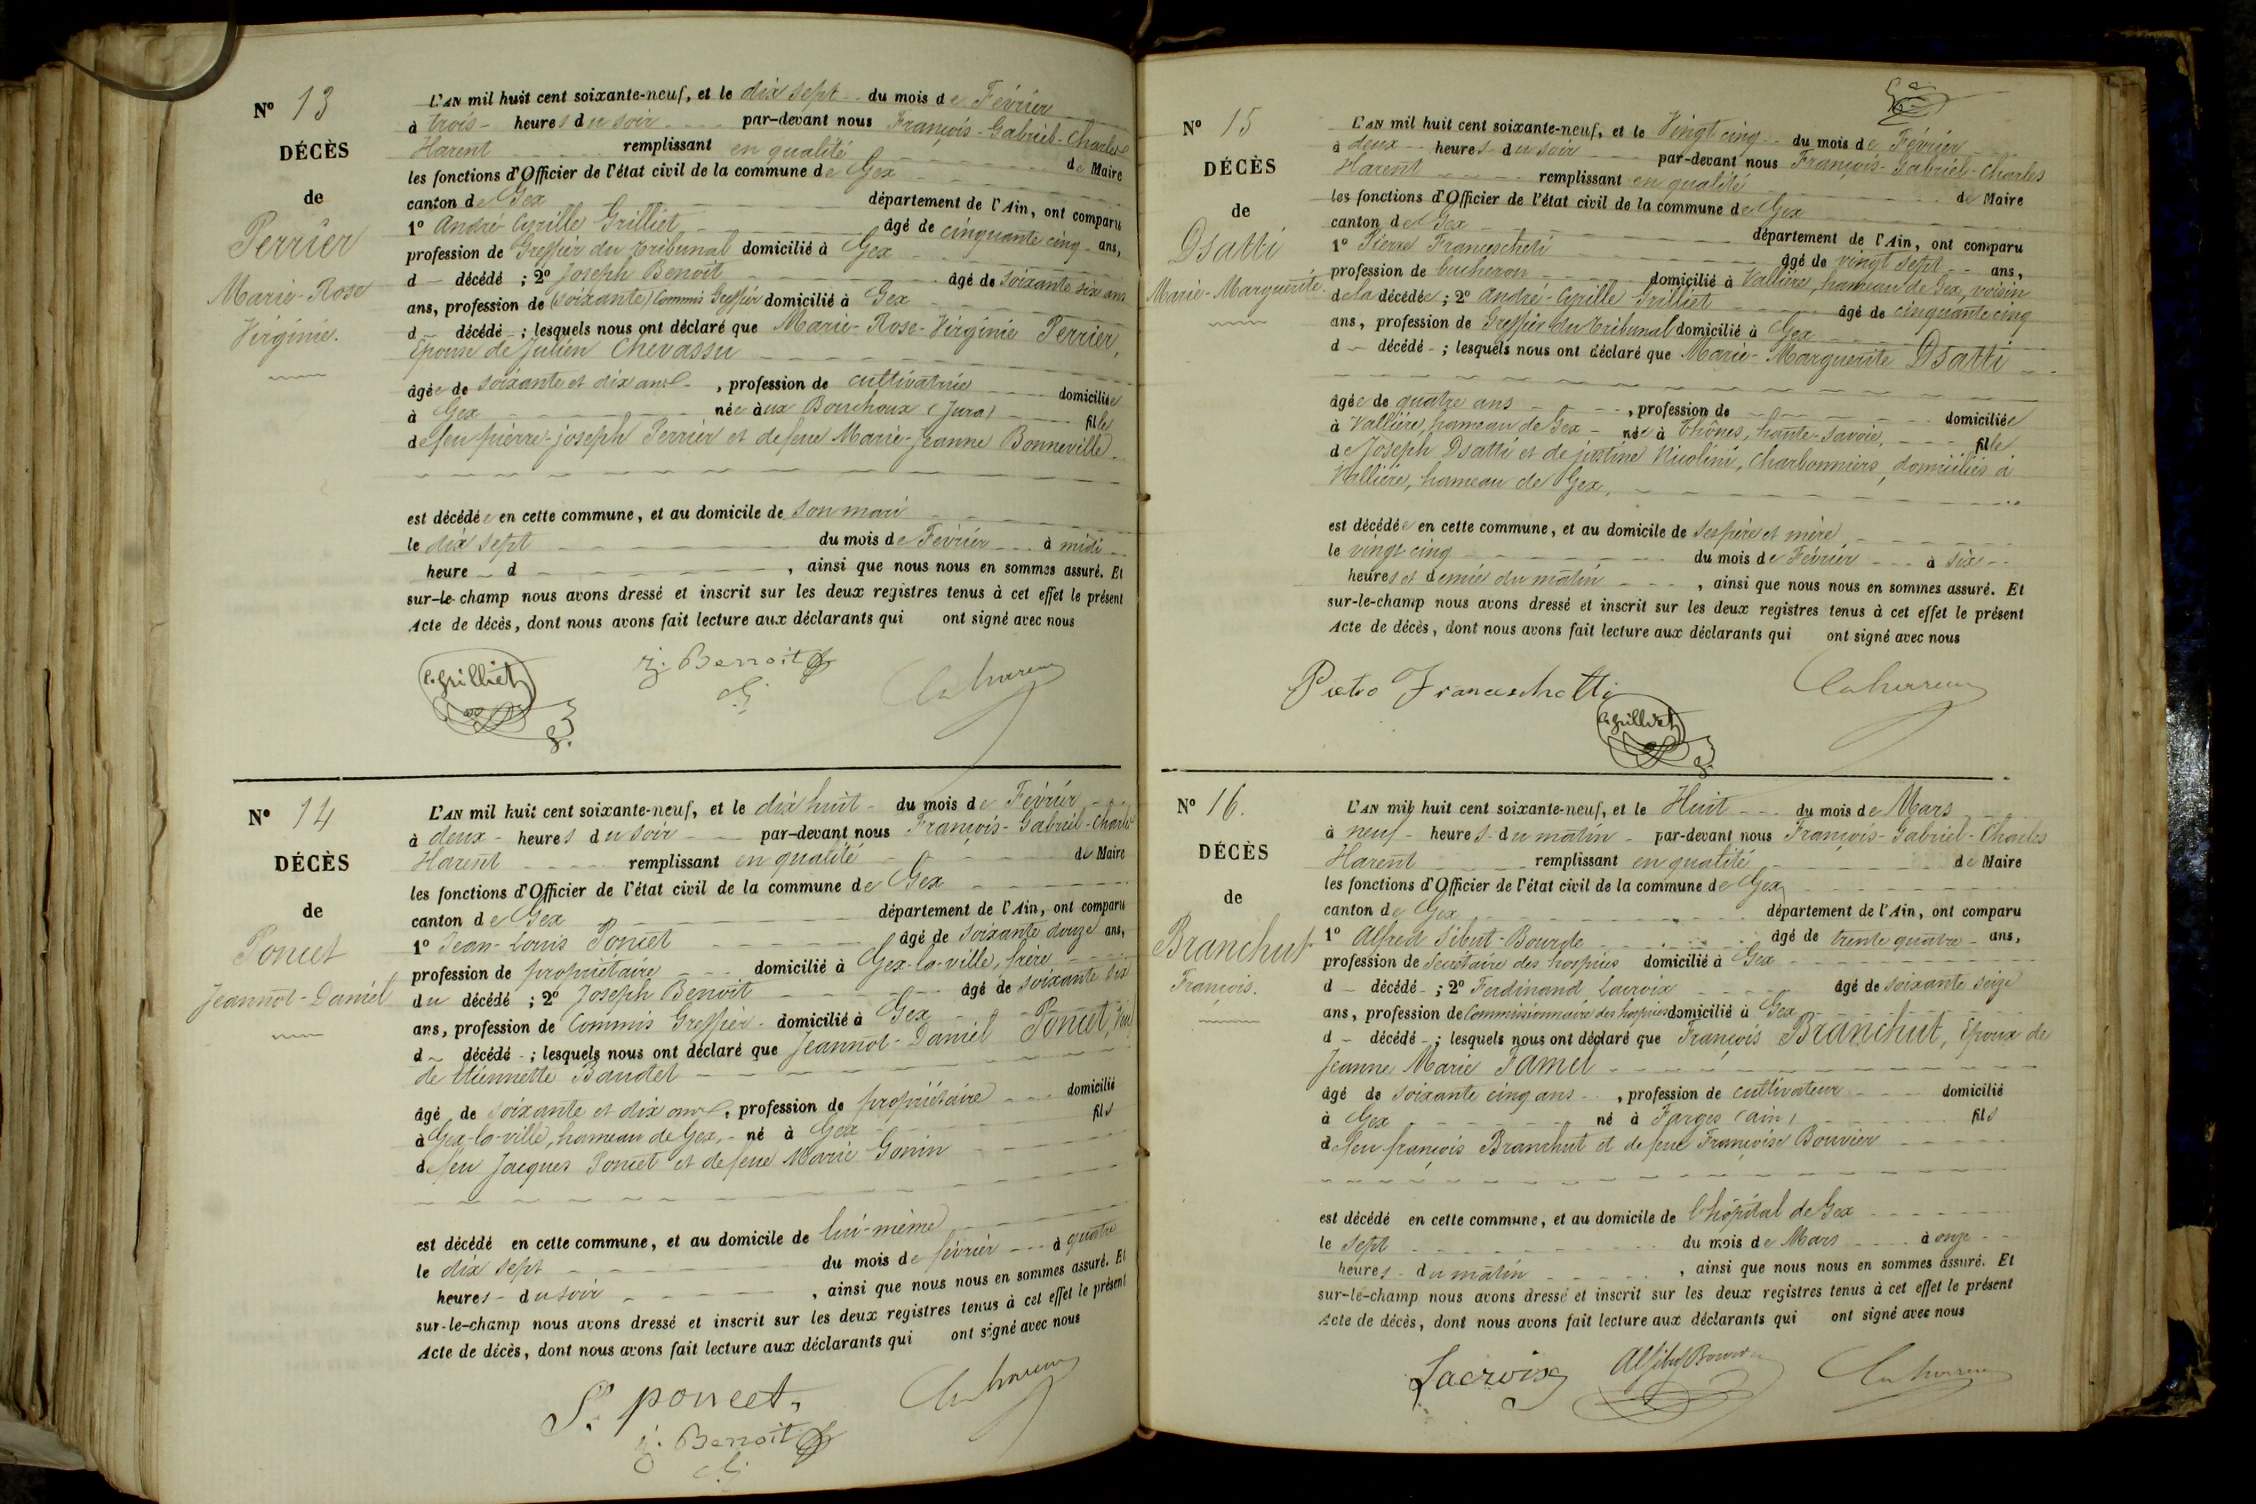 N° 13
DÉCÈS
de
Perrier
Marie-Rose
Virginie.
L'AN mil huit cent soixante-neuf, et le dix sept du mois de Février
à trois heures du soir par-devant nous François-Gabriel-Charles
Harent remplissant en qualité de Maire
les fonctions d'Officier de l'état civil de la commune de Gex
canton de Gex département de l'Ain, ont comparu
1° André Cyrille Grilliet âgé de cinquante cinq ans,
profession de Greffier du tribunal domicilié à Gex
d décédé ; 2° Joseph Benoit âgé de soixante six ans
ans, profession de (soixante) Commis Greffier domicilié à Gex
d décédé ; lesquels nous ont déclaré que Marie-Rose-Virginie Perrier,
Epouse de Julien Chevassu
âgée de soixante et dix ans, profession de cultivatrice domiciliée
à Gex née aux Bouchoux (Jura) fille
de feu pierre-joseph Perrier et de feue Marie-Jeanne Bonneville
est décédée en cette commune, et au domicile de son mari
le dix sept du mois de Février à midi
heure d , ainsi que nous nous en sommes assuré. Et
sur-le-champ nous avons dressé et inscrit sur les deux registres tenus à cet effet le présent
Acte de décès, dont nous avons fait lecture aux déclarants qui ont signé avec nous
C. Grilliet
j. Benoit
Ch harent
N° 14
DÉCÈS
de
Poncet
Jeannot-Daniel
L'AN mil huit cent soixante-neuf, et le dix huit du mois de Février
à deux heures du soir par-devant nous François-Gabriel-Charles
Harent remplissant en qualité de Maire
les fonctions d'Officier de l'état civil de la commune de Gex
canton de Gex département de l'Ain, ont comparu
1° Jean-Louis Poncet âgé de soixante douze ans,
profession de propriétaire domicilié à Gex-la-ville, frère
du décédé ; 2° Joseph Benoit âgé de soixante six
ans, profession de Commis Greffier domicilié à Gex
d décédé ; lesquels nous ont déclaré que Jeannot-Daniel Poncet,
de Etiennette Baudet
âgé de soixante et dix ans, profession de propriétaire domicilié
à Gex-la-ville, hameau de Gex, né à Gex fils
de feu Jacques Poncet et de feue Marie Gonin
est décédé en cette commune, et au domicile de lui-même
le dix sept du mois de février à quatre
heures du soir , ainsi que nous nous en sommes assuré. Et
sur-le-champ nous avons dressé et inscrit sur les deux registres tenus à cet effet le présent
Acte de décès, dont nous avons fait lecture aux déclarants qui ont signé avec nous
poncet
j. Benoit
Ch harent
N° 15
DÉCÈS
de
Dsatti
Marie-Marguerite.
L'AN mil huit cent soixante-neuf, et le Vingt cinq du mois de Février
à deux heures du soir par-devant nous François-Gabriel-Charles
Harent remplissant en qualité de Maire
les fonctions d'Officier de l'état civil de la commune de Gex
canton de Gex département de l'Ain, ont comparu
1° Pierre Francescheti âgé de vingt sept ans,
profession de bucheron domicilié à Vallière, hameau de Gex, voisin
de la décédée ; 2° André-Cyrille Grilliet âgé de cinquante cinq
ans, profession de Greffier du tribunal domicilié à Gex
d décédé ; lesquels nous ont déclaré que Marie-Marguerite Dsatti
âgée de quatre ans , profession de domiciliée
à Vallière, hameau de Gex née à Thônes, haute-savoie, fille
de Joseph Dsatti et de justine Nicolini, Charbonniers, domiciliés à
Vallière, hameau de Gex,
est décédée en cette commune, et au domicile de ses père et mère
le vingt cinq du mois de Février à six
heures et demie du matin , ainsi que nous nous en sommes assuré. Et
sur-le-champ nous avons dressé et inscrit sur les deux registres tenus à cet effet le présent
Acte de décès, dont nous avons fait lecture aux déclarants qui ont signé avec nous
Pietro Franceschetti
Ch harent
C. Grilliet
N° 16.
DÉCÈS
de
Branchut
François.
L'AN mil huit cent soixante-neuf, et le Huit du mois de Mars
à neuf heures du matin par-devant nous François-Gabriel-Charles
Harent remplissant en qualité de Maire
les fonctions d'Officier de l'état civil de la commune de Gex
canton de Gex département de l'Ain, ont comparu
1° Alfred Sibut-Bourde âgé de trente quatre ans,
profession de Secrétaire des hospices domicilié à Gex
d décédé ; 2° Ferdinand Lacroix âgé de soixante seize
ans, profession de Commissionnaire des hospices domicilié à Gex
d décédé ; lesquels nous ont déclaré que François Branchut, Epoux de
Jeanne Marie Famel
âgé de soixante cinq ans , profession de cultivateur domicilié
à Gex né à Farges (ain) fils
de feu françois Branchut et de feue Françoise Bouvier
est décédé en cette commune, et au domicile de l'hôpital de Gex
le sept du mois de Mars à onze
heures du matin , ainsi que nous nous en sommes assuré. Et
sur-le-champ nous avons dressé et inscrit sur les deux registres tenus à cet effet le présent
Acte de décès, dont nous avons fait lecture aux déclarants qui ont signé avec nous
Lacroix
Ch harent